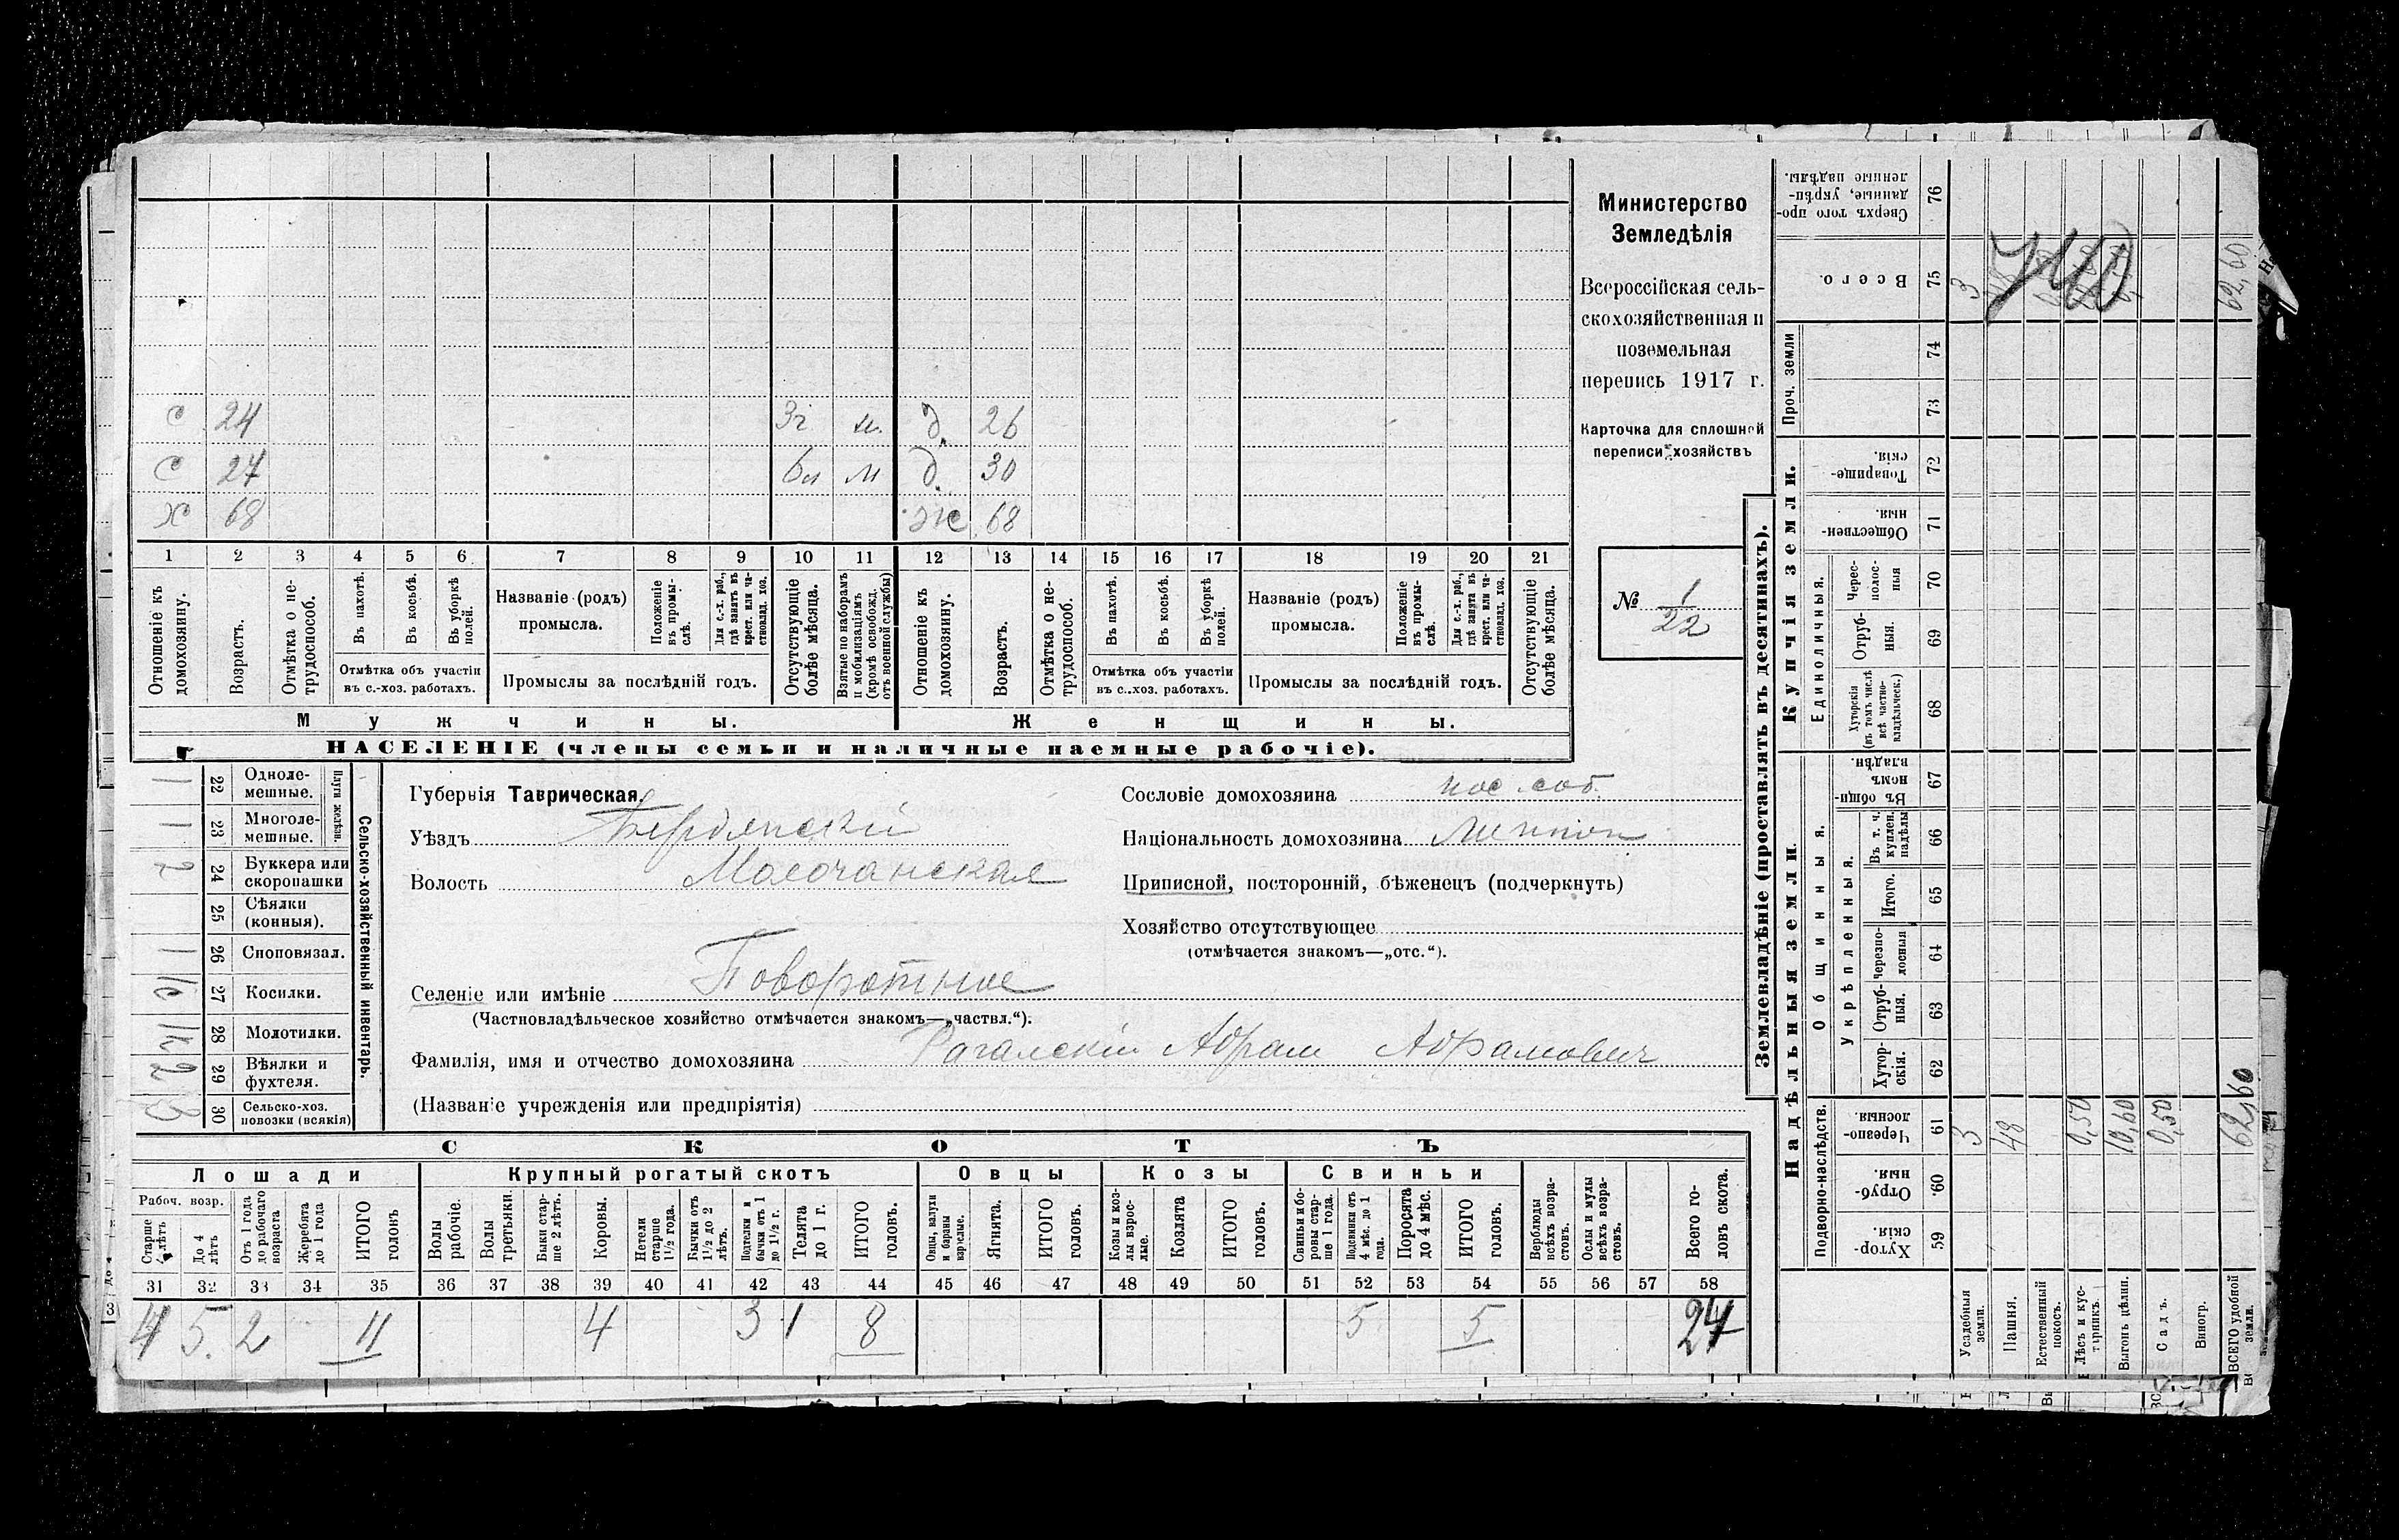 Министерство
Земледѣлія
Всероссійская сель-
скохозяйственная и
поземельная
перепись 1917 г.
Карточка для сплошной
переписи хозяйствъ
№ 1/22
с 24 3г м. д. 26
с 27 6м м д. 30
х 68 ж 68
1 2 3 4 5 6 7 8 9 10 11 12 13 14 15 16 17 18 19 20 21
Отношеніе къ домохозяину.
Возрастъ.
Отмѣтка о не-трудоспособ.
Въ пахотѣ.
Въ косьбѣ.
Въ уборкѣ полей.
Отмѣтка объ участіи
въ с.-хоз. работахъ.
Названіе (родъ)
промысла.
Положеніе въ промы-слѣ.
Для с.-х. раб., гдѣ занятъ въ крест. или ча-стновлад. хоз.
Промыслы за послѣдній годъ.
Отсутствующіе болѣе мѣсяца.
Взятые по наборамъ и мобилизаціямъ (кромѣ освобожд. отъ военной службы)
Отношеніе къ домохозяину.
Возрастъ.
Отмѣтка о не-трудоспособ.
Въ пахотѣ.
Въ косьбѣ.
Въ уборкѣ полей.
Отмѣтка объ участіи
въ с.-хоз. работахъ.
Названіе (родъ)
промысла.
Положеніе въ промы-слѣ.
Для с.-х. раб., гдѣ занята въ крест. или ча-стновлад. хоз.
Промыслы за послѣдній годъ.
Отсутствующіе болѣе мѣсяца.
Мужчины.
Женщины.
НАСЕЛЕНІЕ (члены семьи и наличные наемные рабочіе).
Сельско-хозяйственный инвентарь.
Плуги желѣзн.
1 22 Одноле-мешные.
1 23 Многоле-мешные.
2 24 Буккера или скоропашки
25 Сѣялки (конныя).
1 26 Сноповязал.
27 Косилки.
28 Молотилки.
2 29 Вѣялки и фухтеля.
3 30 Сельско-хоз. повозки (всякія)
Губернія Таврическая
Уѣздъ Бердянскій
Волость Молочанская
Селеніе или имѣніе Поворотное
(Частновладѣльческое хозяйство отмѣчается знакомъ—„частвл.“).
Фамилія, имя и отчество домохозяина Рагалскій Абрам Абрамович
(Названіе учрежденія или предпріятія)
Сословіе домохозяина пос. соб.
Національность домохозяина
Приписной, посторонній, бѣженецъ (подчеркнуть)
Хозяйство отсутствующее
(отмѣчается знакомъ—„отс.“).
СКОТЪ
Лошади
Крупный рогатый скотъ
Овцы
Козы
Свиньи
Рабоч. возр.
Старше 4 лѣтъ
До 4 лѣтъ
Отъ 1 года до рабочаго возраста
Жеребята до 1 года
ИТОГО головъ
Волы рабочіе.
Волы третьяки.
Быки стар-ше 2 лѣтъ.
Коровы.
Нетели старше 1½ года.
Бычки отъ 1½ до 2 лѣтъ.
Подтелки и бычки отъ 1 до 1½ г.
Телята до 1 г.
ИТОГО головъ.
Овцы, валухи и бараны взрослые.
Ягнята.
ИТОГО головъ.
Козы и коз-лы взрос-лые.
Козлята
ИТОГО головъ.
Свиньи и бо-ровы стар-ше 1 года.
Подсвинки отъ 4 мѣс. до 1 года.
Поросята до 4 мѣс.
ИТОГО головъ.
Верблюды всѣхъ возра-стовъ.
Ослы и мулы всѣхъ возра-стовъ.
Всего го-ловъ скота.
31 32 33 34 35 36 37 38 39 40 41 42 43 44 45 46 47 48 49 50 51 52 53 54 55 56 57 58
4 5. 2 11 4 3 1 8 5 5 24
Землевладѣніе (проставлять въ десятинахъ).
Купчія земли.
Надѣльныя земли.
Сверхъ того про-данные, укрѣп-ленные надѣлы. 76
Всего. 75 3 62,60
Проч. земли 74
73
Товарище-скія. 72
Обществен-ныя. 71
Единоличныя.
Черес-полос-ныя 70
Отруб-ныя. 69
Хуторскія (въ томъ числѣ всѣ частно-владѣльческ.) 68
Общинныя.
Въ общи-номъ владѣн. 67
Укрѣпленныя.
Въ т. ч. куплен. надѣлы 66
Итого. 65
Черезпо-лосныя 64
Отруб-ныя. 63
Хутор-скія. 62
Подворно-наслѣдств.
Черезпо-лосныя. 61 3 48 0,50 10,60 0,50 62,60
Отруб-ныя. 60
Хутор-скія. 59
Усадебныя земли.
Пашня.
Естественный покосъ.
Лѣсъ и кус-тарникъ.
Выгонъ цѣлин.
Садъ.
Виногр.
ВСЕГО удобной земли.